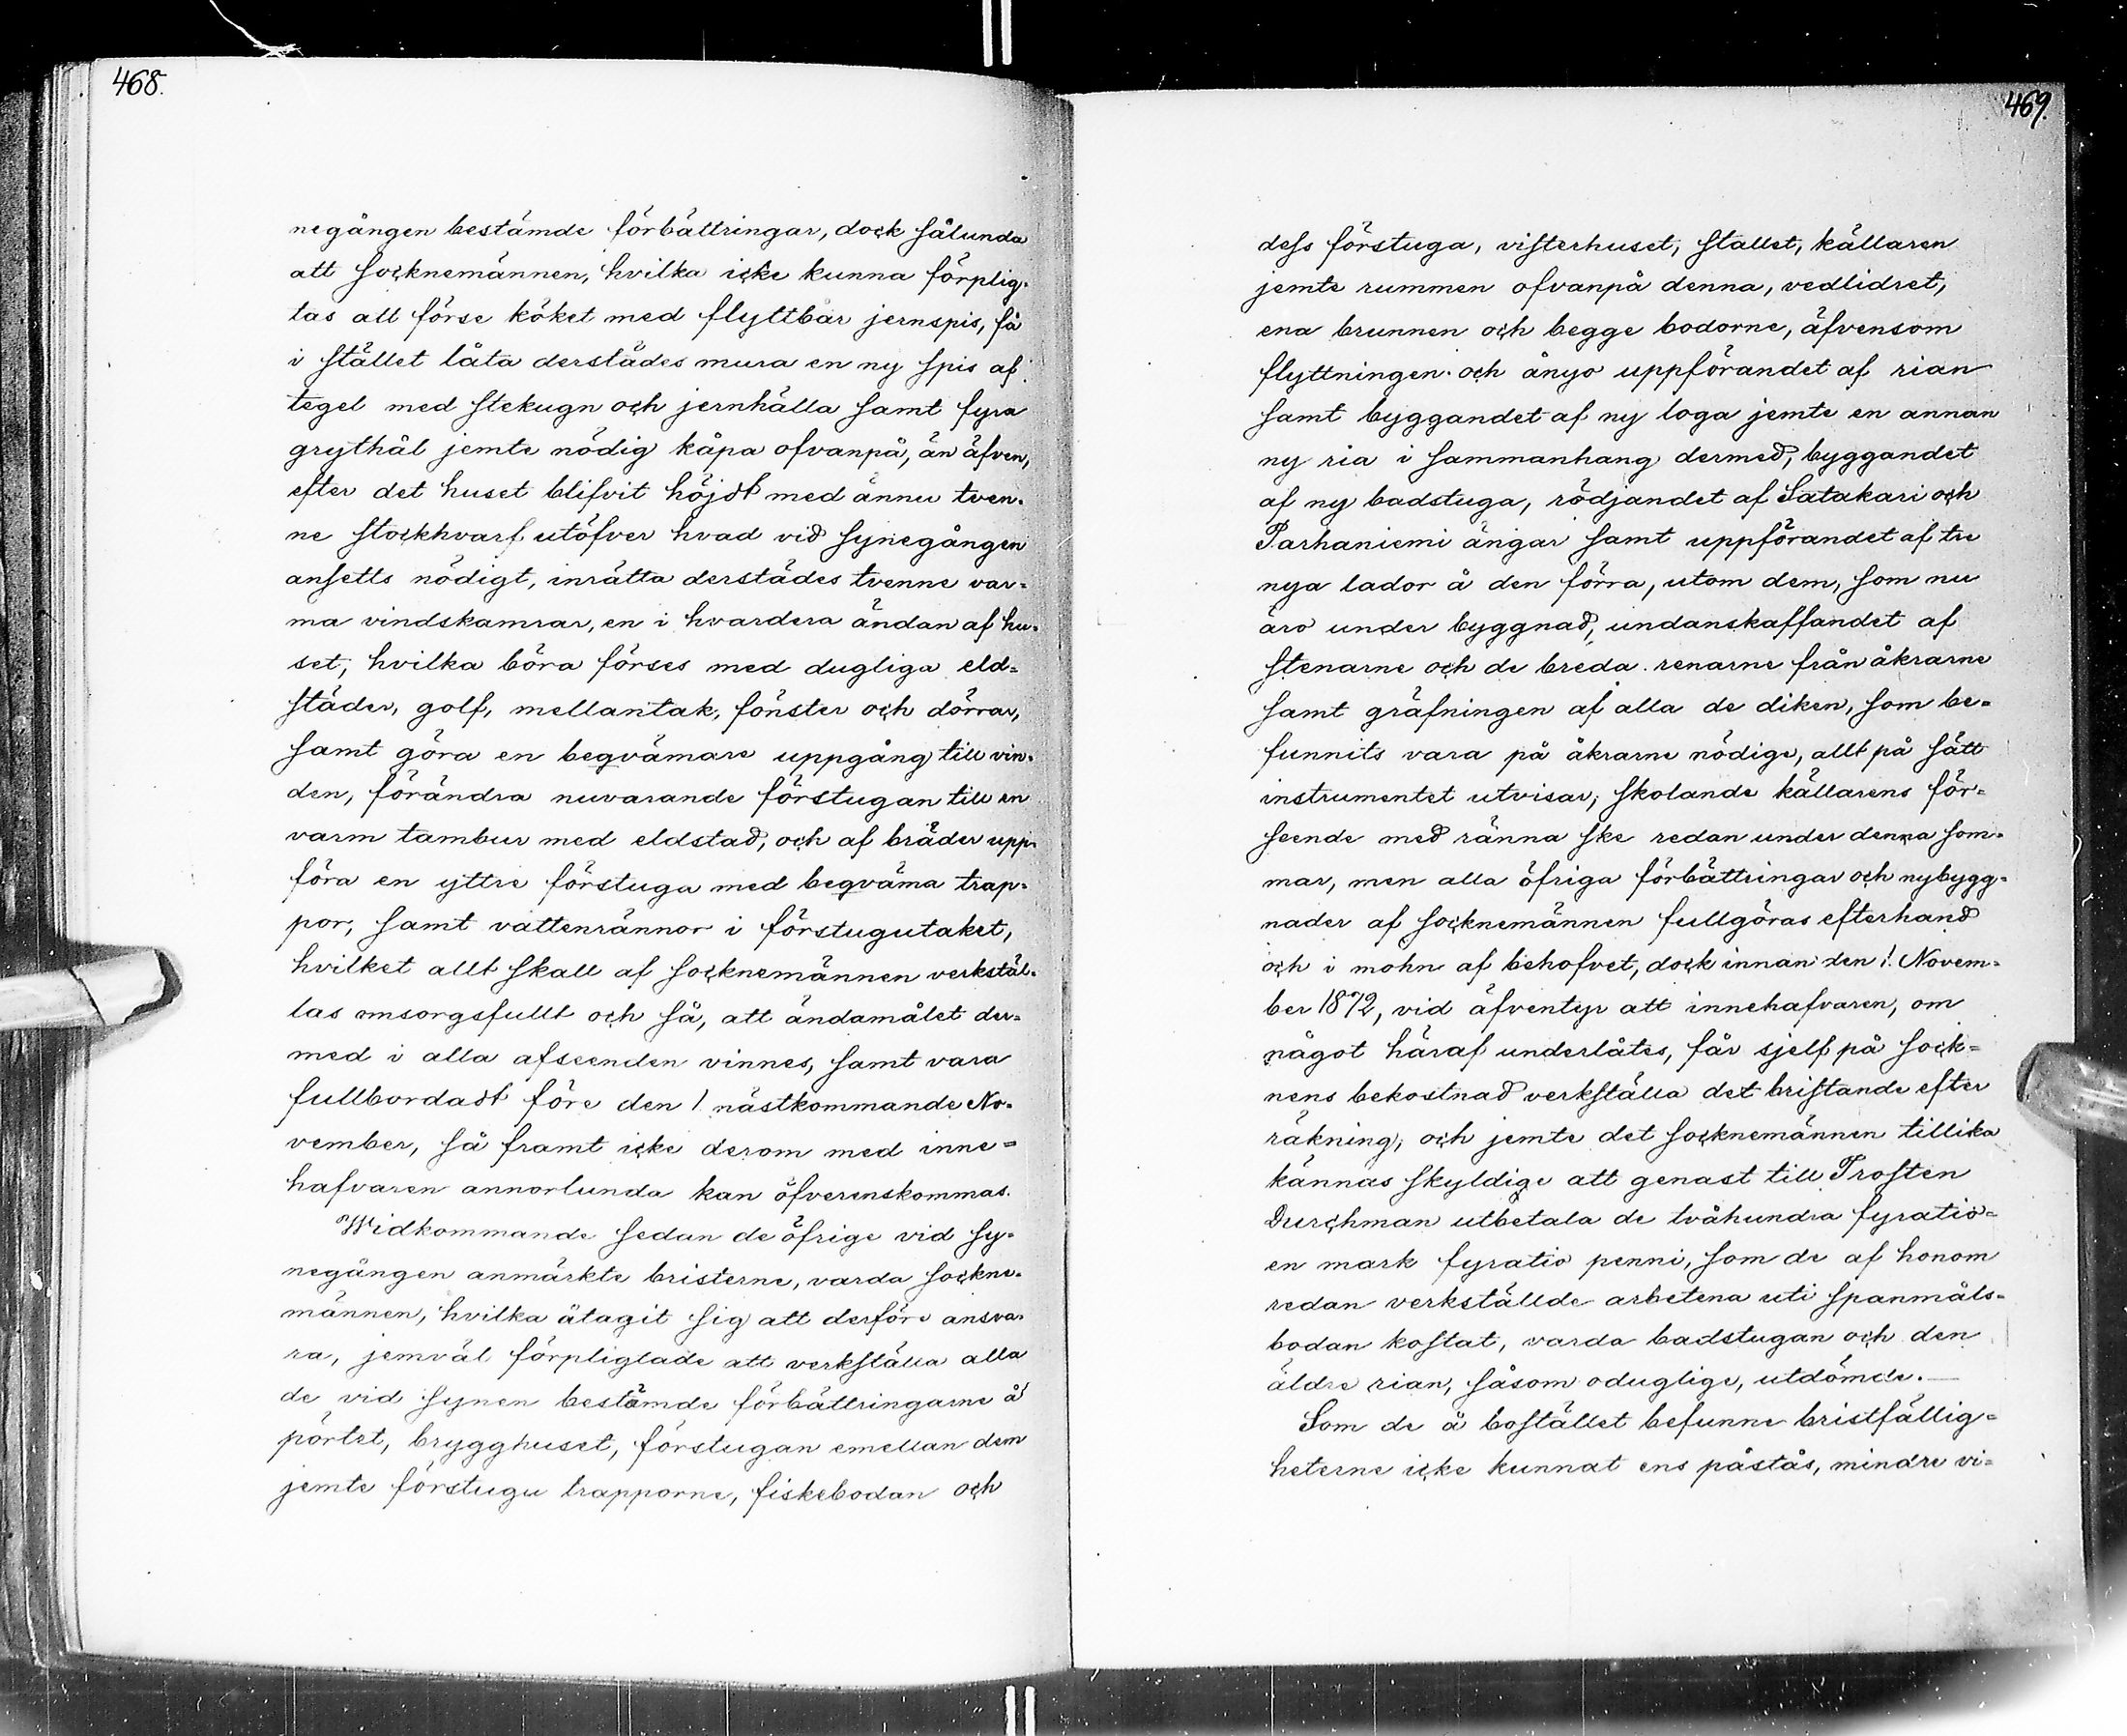 468.
negången bestämde förbättringar, dock sålunda
att socknemännen, hvilka icke kunna förplig-
tas att förse köket med flyttbar jernspis, få
i stället låta derstädes mura en ny spis af
tegel med stekugn och jernhälla samt fyra
grythål jemte nödig kåpa ofvanpå, än äfven,
efter det huset blifvit höjdt med ännu tven-
ne stockhvarf utöfver hvad vid synegången
ansetts nödigt, inrätta derstädes tvenne var-
ma vindskamrar, en i hvardera ändan af hu-
set, hvilka böra förses med dugliga eld-
städer, golf, mellantak, fönster och dörrar,
samt göra en beqvämare uppgång till vin-
den, förändra nuvarande förstugan till en
varm tambur med eldstad, och af bräder upp-
föra en yttre förstuga med beqväma trap-
por, samt vattenrännor i förstugutaket,
hvilket allt skall af socknemännen verkstäl-
las omsorgsfullt och så, att ändamålet der-
med i alla afseenden vinnes, samt vara
fullbordadt före den 1 nästkommande No-
vember, så framt icke derom med inne-
hafvaren annorlunda kan öfverenskommas.
Widkommande sedan de öfrige vid sy-
negången anmärkte bristerne, varda sockne-
männen, hvilka åtagit sig att derföre ansva-
ra, jemväl förpligtade att verkställa alla
de vid synen bestämde förbättringarne å
pörtet, brygghuset, förstugan emellan dem
jemte förstugu trapporne, fiskebodan och
469.
dess förstuga, visterhuset, stallet, källaren
jemte rummen ofvanpå denna, vedlidret,
ena brunnen och begge bodorne, äfvensom
flyttningen och ånyo uppförandet af rian
samt byggandet af ny loga jemte en annan
ny ria i sammanhang dermed, byggandet
af ny badstuga, rödjandet af Satakari och
Parhaniemi ängar samt uppförandet af tre
nya lador å den förra, utom dem, som nu
äro under byggnad, undanskaffandet af
stenarne och de breda renarne från åkrarne
samt gräfningen af alla de diken, som be-
funnits vara på åkrarne nödige, allt på sätt
instrumentet utvisar, skolande källarens för-
seende med ränna ske redan under denna som-
mar, men alla öfriga förbättringar och nybygg-
nader af socknemännen fullgöras efterhand
och i mohn af behofvet, dock innan den 1. Novem-
ber 1872, vid äfventyr att innehafvaren, om
något häraf underlåtes, får sjelf på sock-
nens bekostnad verkställa det bristande efter
räkning, och jemte det socknemännen tillika
kännas skyldige att genast till Prosten
Durchman utbetala de tvåhundra fyratio-
en mark fyratio penni, som de af honom
redan verkställde arbetena uti spanmåls-
bodan kostat, varda badstugan och den
äldre rian, såsom oduglige, utdömde.—
Som de å bostället befunne bristfällig-
heterne icke kunnat ens påstås, mindre vi-